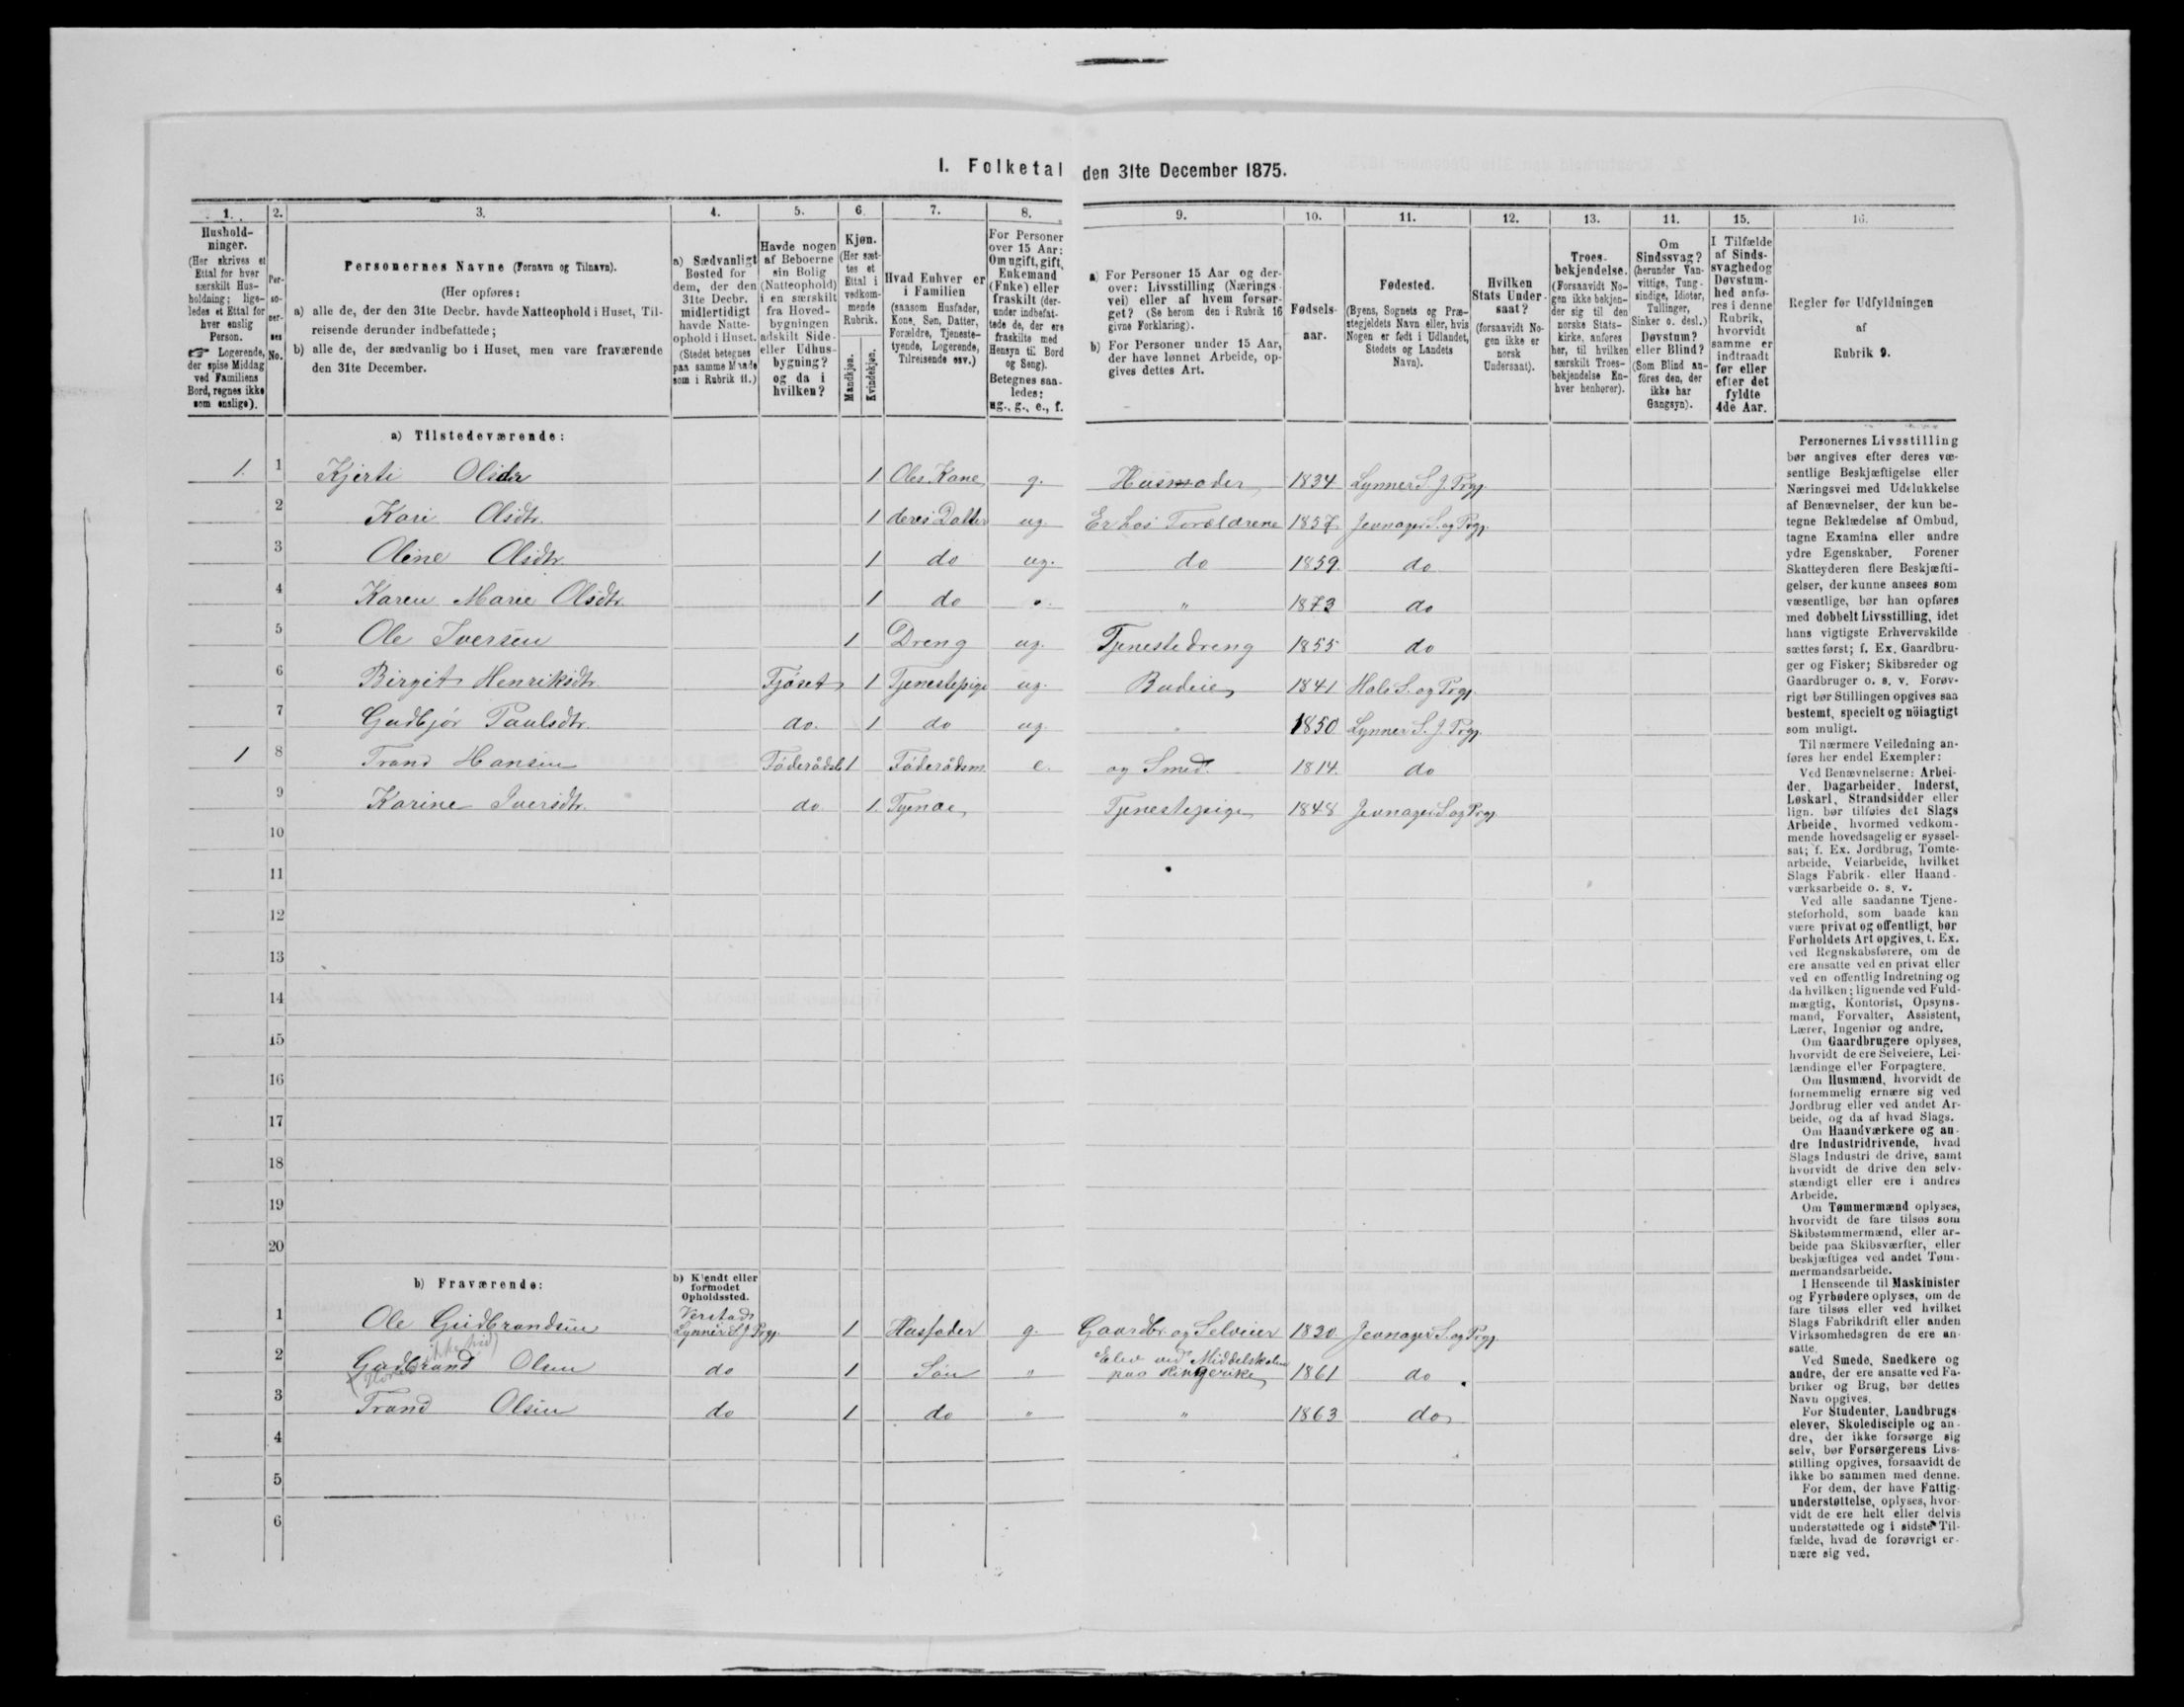 I. Folketal den 31te December 1875.
1. 2. 3. 4. 5. 6. 7. 8. 9. 10. 11. 12. 13. 14. 15. 16.
Hushold-
ninger.
(Her skrives et
Ettal for hver
særskilt Hus-
holdning; lige-
ledes et Ettal for
hver enslig
Person.
☞ Logerende,
der spise Middag
ved Familiens
Bord, regnes ikke
som enslige).
Per-
so-
ner-
nes
No.
Personernes Navne (Fornavn og Tilnavn).
(Her opføres:
a) alle de, der den 31te Decbr. havde Natteophold i Huset, Til-
reisende derunder indbefattede;
b) alle de, der sædvanlig bo i Huset, men vare fraværende
den 31te December.
a) Sædvanligt
Bosted for
dem, der den
31te Decbr.
midlertidigt
havde Natte-
ophold i Huset.
(Stedet betegnes
paa samme Maade
som i Rubrik 11.)
Havde nogen
af Beboerne
sin Bolig
(Natteophold)
i en særskilt
fra Hoved-
bygningen
adskilt Side-
eller Udhus-
bygning?
og da i
hvilken?
Kjøn.
(Her sæt-
tes et
Ettal i
vedkom-
mende
Rubrik.
Mandkjøn.
Kvindekjøn.
Hvad Enhver er
i Familien
(saasom Husfader,
Kone, Søn, Datter,
Forældre, Tjeneste-
tyende, Logerende,
Tilreisende osv.)
For Personer
over 15 Aar:
Om ugift, gift,
Enkemand
(Enke) eller
fraskilt (der-
under indbefat-
tede de, der ere
fraskilte med
Hensyn til Bord
og Seng).
Betegnes saa-
ledes:
ug., g., e., f.
a) For Personer 15 Aar og der-
over: Livsstilling (Nærings-
vei) eller af hvem forsør-
get? (Se herom den i Rubrik 16
givne Forklaring).
b) For Personer under 15 Aar,
der have lønnet Arbeide, op-
gives dettes Art.
Fødsels-
aar.
Fødested.
(Byens, Sognets og Præ-
stegjeldets Navn eller, hvis
Nogen er født i Udlandet,
Stedets og Landets
Navn).
Hvilken
Stats Under-
saat?
(forsaavidt No-
gen ikke er
norsk
Undersaat).
Troes-
bekjendelse.
(Forsaavidt No-
gen ikke bekjen-
der sig til den
norske Stats-
kirke, anføres
her, til hvilken
særskilt Troes-
bekjendelse En-
hver henhører).
Om
Sindssvag?
(herunder Van-
vittige, Tung-
sindige, Idioter,
Tullinger,
Sinker o. desl.)
Døvstum?
eller Blind?
(Som Blind an-
føres den, der
ikke har
Gangsyn).
I Tilfælde
af Sinds-
svaghedog
Døvstum-
hed anfø-
res i denne
Rubrik,
hvorvidt
samme er
indtraadt
før eller
efter det
fyldte
4de Aar.
Regler for Udfyldningen
af
Rubrik 9.
a) Tilstedeværende:
1. 1 Kjersti Olsdtr 1 Oles Kone g. Husmoder 1834 Lynner S. J. Prgj.
2 Kari Olsdtr. 1 deres Datter ug. Er hos Forældrene 1857. Jevnager S. og Prgj.
3 Oline Olsdtr. 1 do ug. do 1859. do
4 Karen Marie Olsdtr. 1 do " 1873 do
5 Ole Iversen 1 Dreng ug. Tjenestedreng 1855 do
6 Birgit Henriksdtr. Fjøset 1 Tjenestepige ug. Budeie 1841 Hols S. og Prgj.
7 Gudbjør Paulsdtr. do. 1 do ug. " 1850 Lynner S. J. Prgj.
1 8 Trand Hansen 1 Föderådsm. e. og Smed. 1814. do
9 Karine Iversdtr. do 1. Tyende Tjenestepige 1848 Jevnager S og Prgj.
10
11
12
13
14
15
16
17
18
19
20
b) Fraværende:
b) Kjendt eller
formodet
Opholdssted.
1 Ole Gudbrandsen Lynner S. J. Prgj. 1 Husfader g. Gaardbr. og Selveier 1820 Jevnager S. og Prgj.
2 Gudbrand Olsen do 1 Sön " Elev ved Middelskolen paa Ringerike 1861 do
3 Trand Olsen do 1 do " " 1863 do
4
5
6
Personernes Livsstilling
bør angives efter deres væ-
sentlige Beskjæftigelse eller
Næringsvei med Udelukkelse
af Benævnelser, der kun be-
tegne Beklædelse af Ombud,
tagne Examina eller andre
ydre Egenskaber. Forener
Skatteyderen flere Beskjæfti-
gelser, der kunne ansees som
væsentlige, bør han opføres
med dobbelt Livsstilling, idet
hans vigtigste Erhvervskilde
sættes først; f. Ex. Gaardbru-
ger og Fisker; Skibsreder og
Gaardbruger o. s. v. Forøv-
rigt bør Stillingen opgives saa
bestemt, specielt og nöiagtigt
som muligt.
Til nærmere Veiledning an-
føres her endel Exempler:
Ved Benævnelserne: Arbei-
der, Dagarbeider, Inderst,
Løskarl, Strandsidder eller
lign. bør tilføies det Slags
Arbeide, hvormed vedkom-
mende hovedsagelig er syssel-
sat; f. Ex. Jordbrug, Tomte-
arbeide, Veiarbeide, hvilket
Slags Fabrik- eller Haand-
værksarbeide o. s. v.
Ved alle saadanne Tjene-
steforhold, som baade kan
være privat og offentligt, bør
Forholdets Art opgives, t. Ex.
ved Regnskabsførere, om de
ere ansatte ved en privat eller
ved en offentlig Indretning og
da hvilken; lignende ved Fuld-
mægtig, Kontorist, Opsyns-
mand, Forvalter, Assistent,
Lærer, Ingeniør og andre.
Om Gaardbrugere oplyses,
hvorvidt de ere Selveiere, Lei-
lændinge eller Forpagtere.
Om Husmænd, hvorvidt de
fornemmelig ernære sig ved
Jordbrug eller ved andet Ar-
beide, og da af hvad Slags.
Om Haandværkere og an-
dre Industridrivende, hvad
Slags Industri de drive, samt
hvorvidt de drive den selv-
stændigt eller ere i andres
Arbeide.
Om Tømmermænd oplyses,
hvorvidt de fare tilsøs som
Skibstømmermænd, eller ar-
beide paa Skibsværfter, eller
beskjæftiges ved andet Tøm-
mermandsarbeide.
I Henseende til Maskinister
og Fyrbødere oplyses, om de
fare tilsøs eller ved hvilket
Slags Fabrikdrift eller anden
Virksomhedsgren de ere an-
satte.
Ved Smede, Snedkere og
andre, der ere ansatte ved Fa-
briker og Brug, bør dettes
Navn opgives.
For Studenter, Landbrugs-
elever, Skoledisciple og an-
dre, der ikke forsørge sig
selv, bør Forsørgerens Livs-
stilling opgives, forsaavidt de
ikke bo sammen med denne.
For dem, der have Fattig-
understøttelse, oplyses, hvor-
vidt de ere helt eller delvis
understøttede og i sidste Til-
fælde, hvad de forøvrigt er-
nære sig ved.